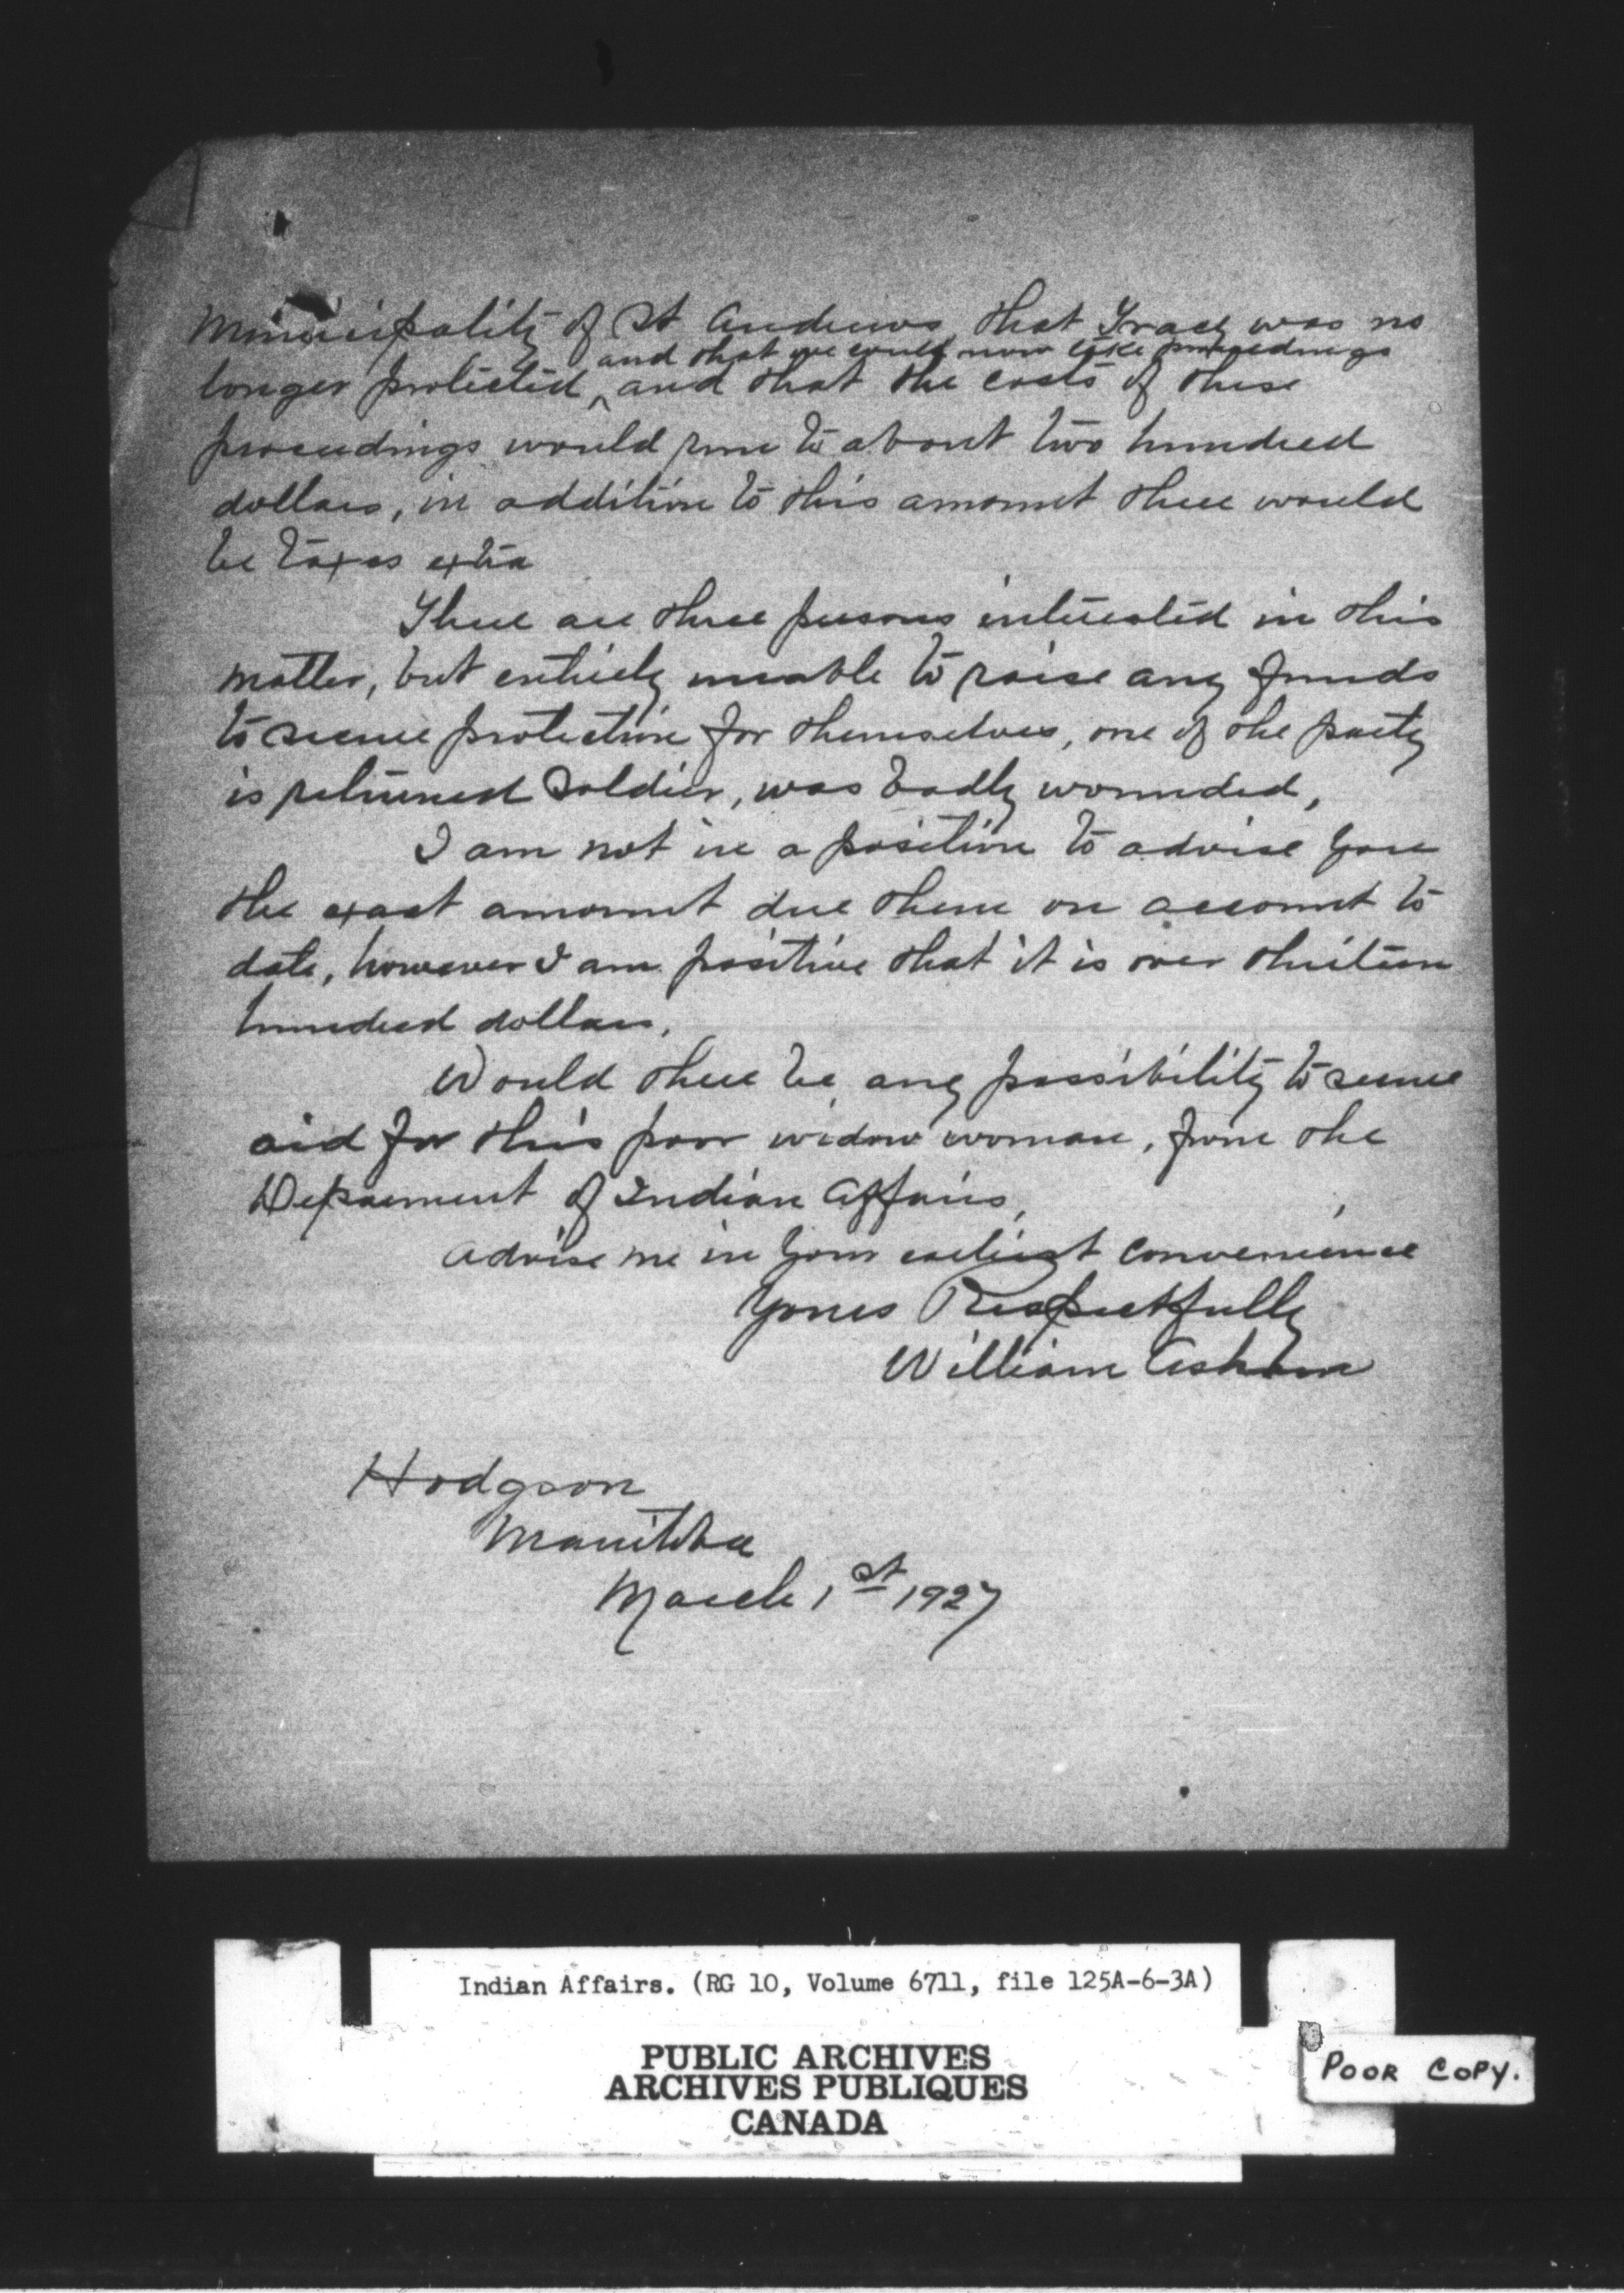 Municipality of St Andrews, that Tracy was no
and that we could now take proceedings
longer protected, ^ and that the costs of these
proceedings would run to about two hundred
dollars, in addition to this amount there would
be taxes extra
There are three persons interested in this
matter, but entirely unable to raise any funds
to secure protection for themselves, one of the party
is returned Soldier, was badly wounded,
I am not in a position to advise you
the exact amount due them on account to
date, however I am positive that it is over thirteen
hundred dollars.
Would there be any possibility to secure
aid for this poor widow woman, from the
Depaement of Indian Affairs,
Advise me in your earliest convenience
Yours Respectfully
William Asham
Hodgson
Manitoba
March 1st 1927
Indian Affairs. (RG 10, Volume 6711, file 125A-6-3A)
PUBLIC ARCHIVES
ARCHIVES PUBLIQUES
CANADA
POOR COPY.